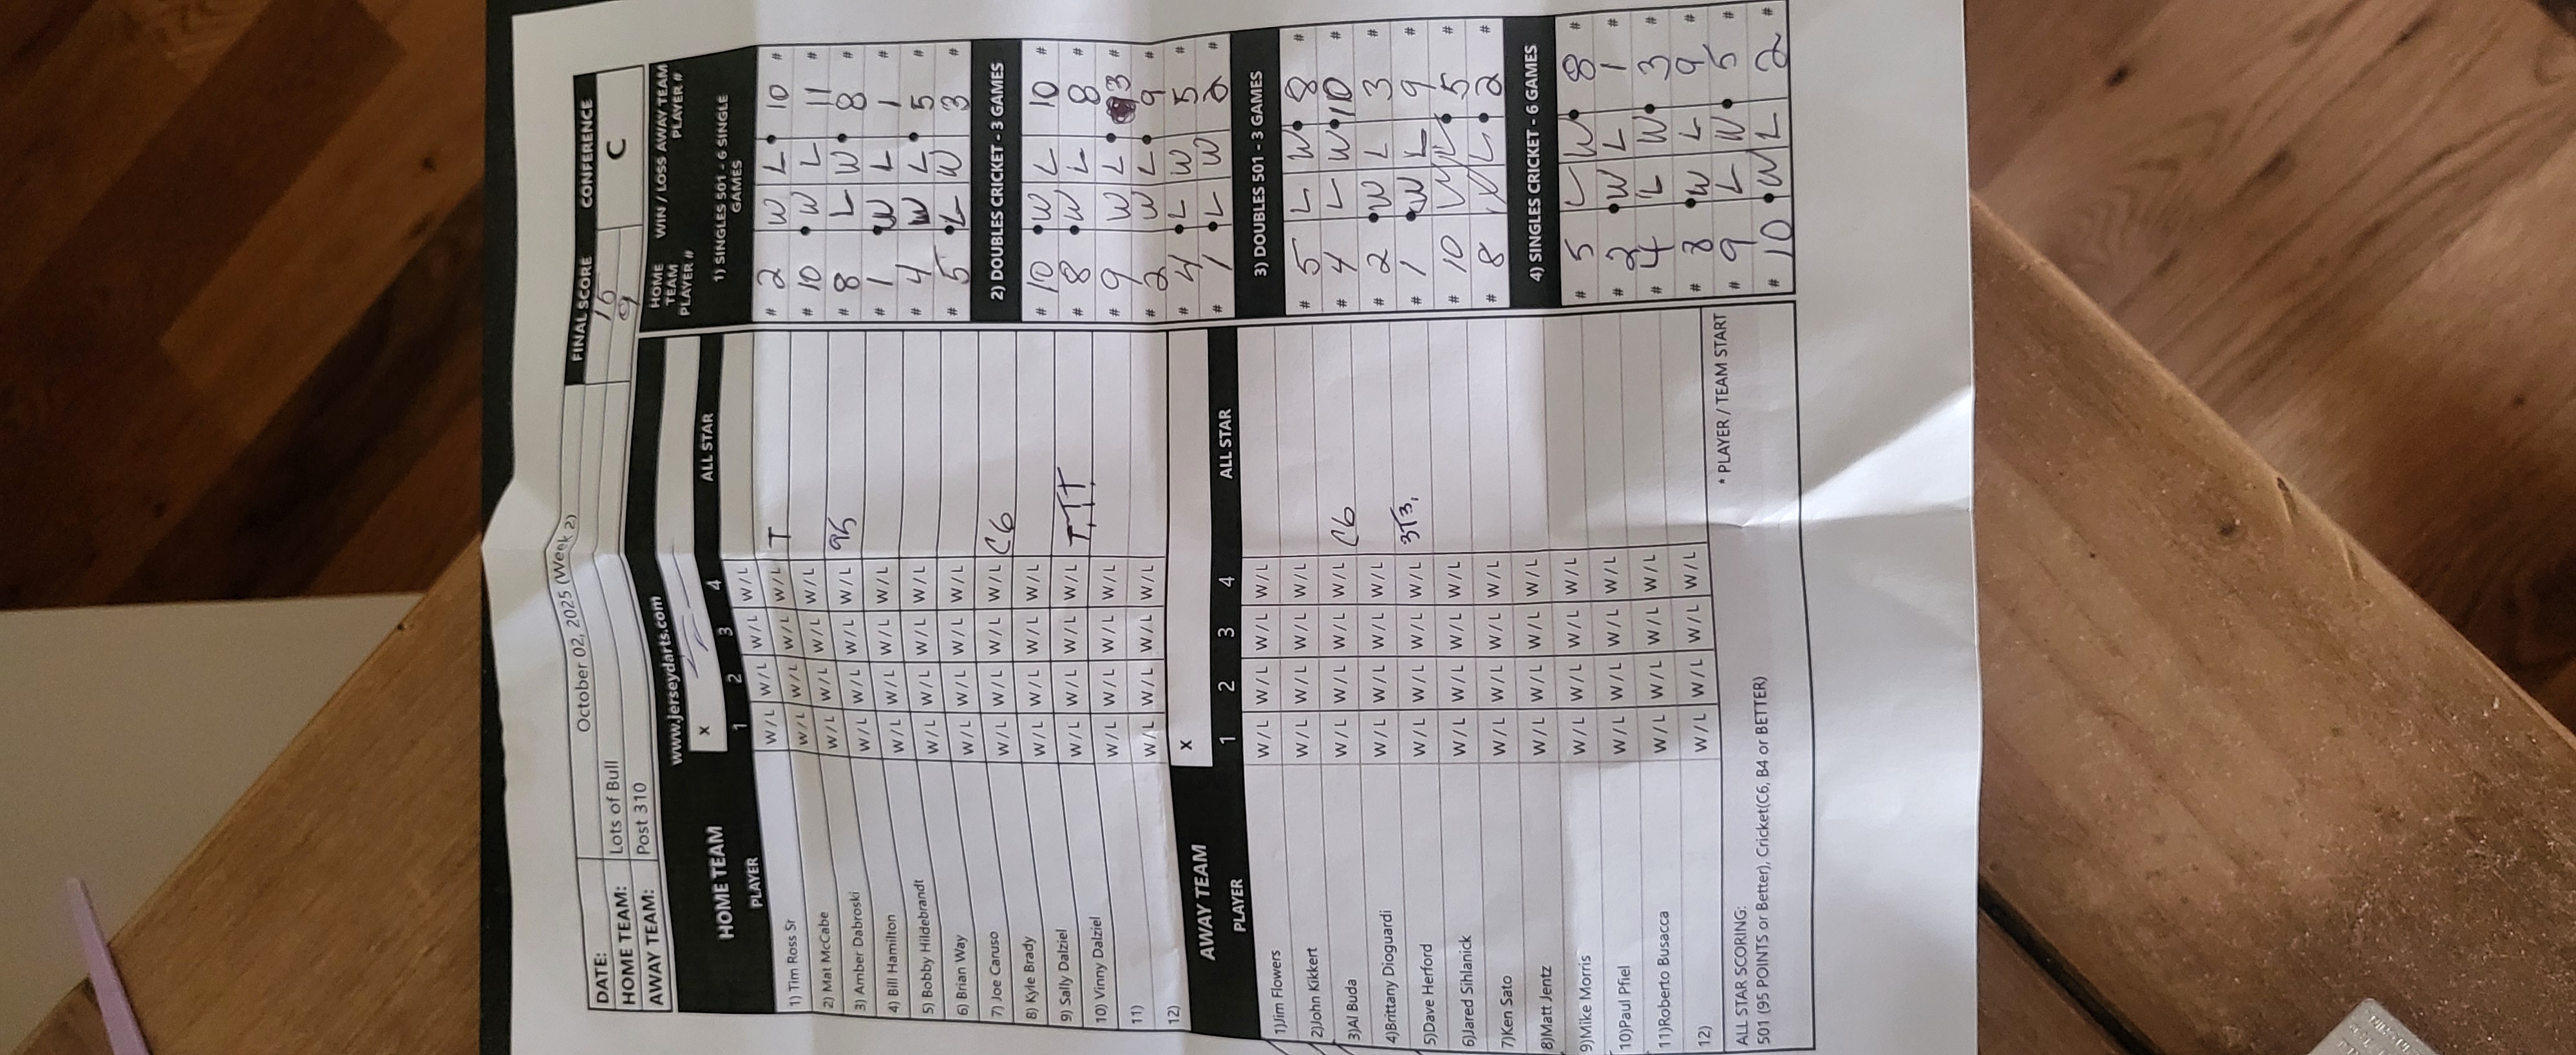 DATE: October 02, 2025 (Week 2)
FINAL SCORE CONFERENCE
HOME TEAM: Lots of Bull 15 C
AWAY TEAM: Post 310 9
www.jerseydarts.com
HOME TEAM X
PLAYER 1 2 3 4 ALL STAR
W/L W/L W/L W/L
1) Tim Ross Sr W/L W/L W/L W/L T
2) Mat McCabe W/L W/L W/L W/L
3) Amber Dabroski W/L W/L W/L W/L 95
4) Bill Hamilton W/L W/L W/L W/L
5) Bobby Hildebrandt W/L W/L W/L W/L
6) Brian Way W/L W/L W/L W/L
7) Joe Caruso W/L W/L W/L W/L C6
8) Kyle Brady W/L W/L W/L W/L
9) Sally Dalziel W/L W/L W/L W/L T,T,T
10) Vinny Dalziel W/L W/L W/L W/L
11) W/L W/L W/L W/L
12)
AWAY TEAM X
PLAYER 1 2 3 4 ALL STAR
1)Jim Flowers W/L W/L W/L W/L
2)John Kikkert W/L W/L W/L W/L
3)Al Buda W/L W/L W/L W/L C6
4)Brittany Dioguardi W/L W/L W/L W/L
5)Dave Herford W/L W/L W/L W/L 3T3,
6)Jared Sihlanick W/L W/L W/L W/L
7)Ken Sato W/L W/L W/L W/L
8)Matt Jentz W/L W/L W/L W/L
9)Mike Morris W/L W/L W/L W/L
10)Paul Pfiel W/L W/L W/L W/L
11)Roberto Busaca W/L W/L W/L W/L
12) W/L W/L W/L W/L
ALL STAR SCORING: * PLAYER / TEAM START
501 (95 POINTS or Better), Cricket(C6, B4 or BETTER)
HOME TEAM PLAYER # WIN / LOSS AWAY TEAM PLAYER #
1) SINGLES 501 - 6 SINGLE GAMES
# 2 W L 10 #
# 10 W L 11 #
# 8 L W 8 #
# 1 W L 1 #
# 4 W L 5 #
# 5 L W 3 #
2) DOUBLES CRICKET - 3 GAMES
# 10 W L 10 #
# 8 W L 8 #
# 9 W L 3 #
# 2 W L 9 #
# 4 L W 5 #
# 1 L W 2 #
3) DOUBLES 501 - 3 GAMES
# 5 L W 8 #
# 4 L W 10 #
# 2 W L 3 #
# 1 W L 9 #
# 10 W L 5 #
# 8 W L 2 #
4) SINGLES CRICKET - 6 GAMES
# 5 L W 8 #
# 2 W L 1 #
# 4 L W 3 #
# 8 W L 9 #
# 9 L W 5 #
# 10 W L 2 #